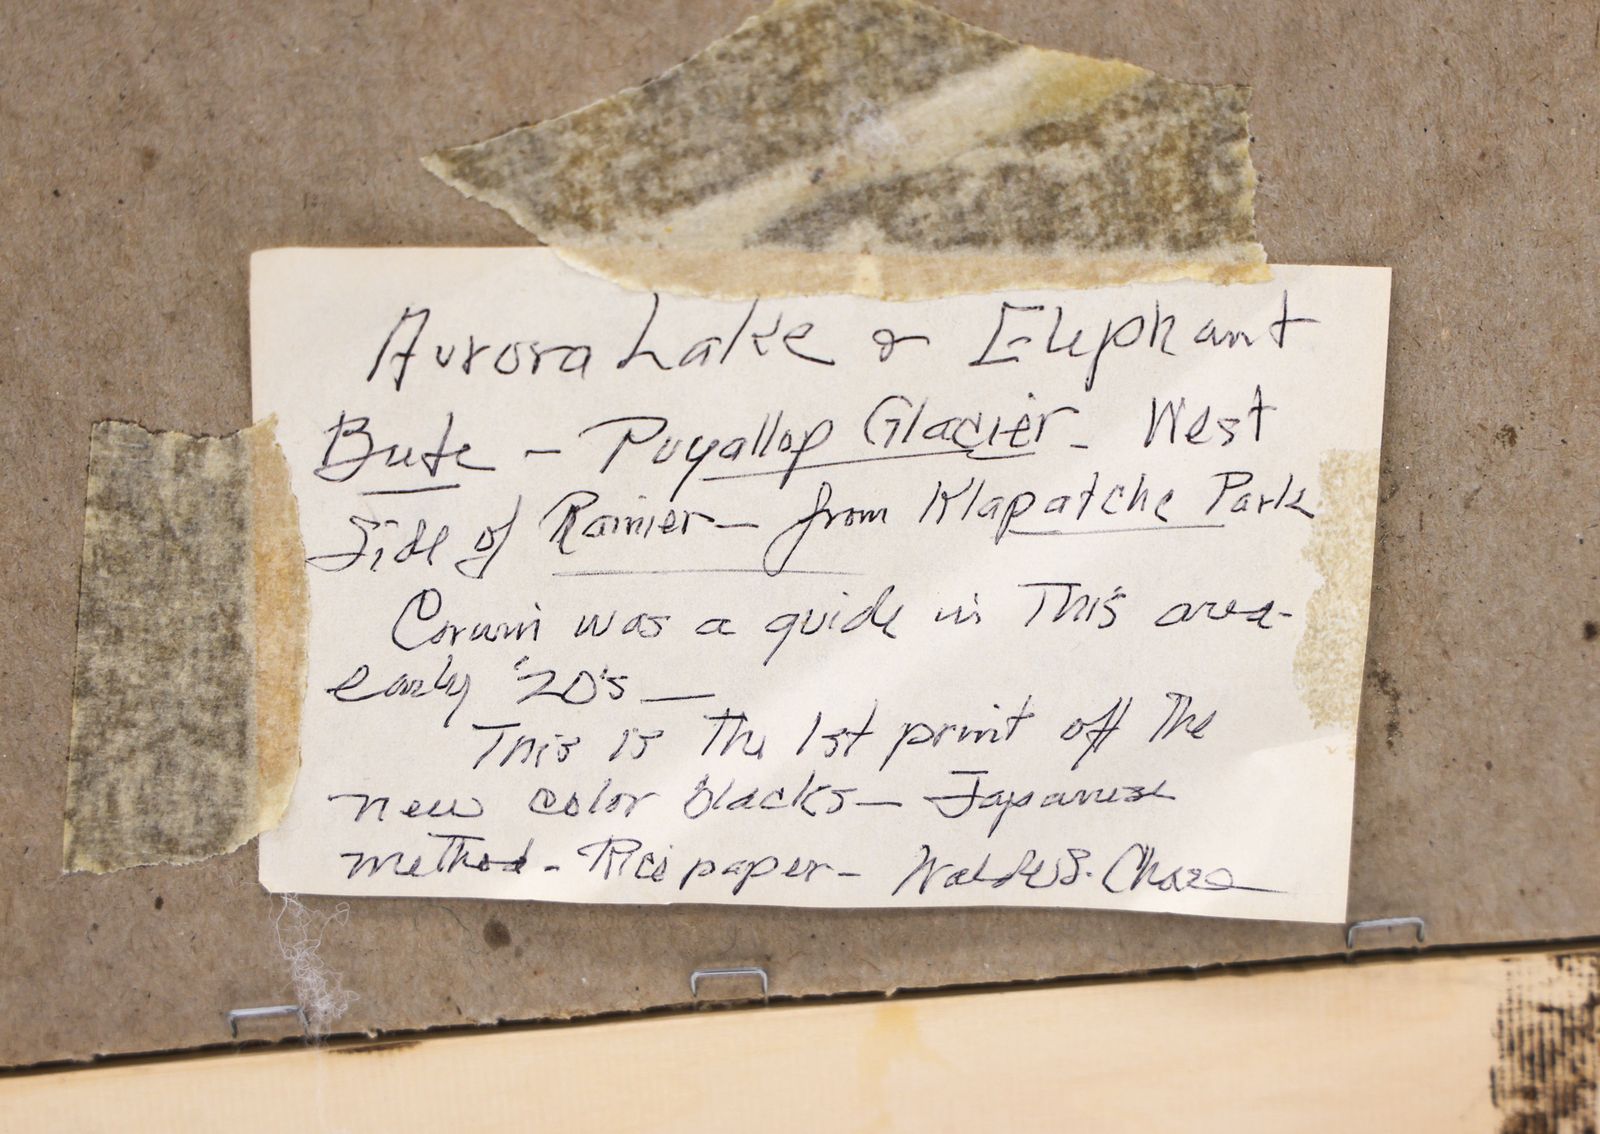 Aurora Lake & Elephant
Bute - Puyallop Glacier - West
Side of Rainier - from Klapatche Park
Corwin was a guide in This area -
early '20's -
This is The 1st print off The
new color blacks - Japanese
method - Rice paper - Waldo S. Chase